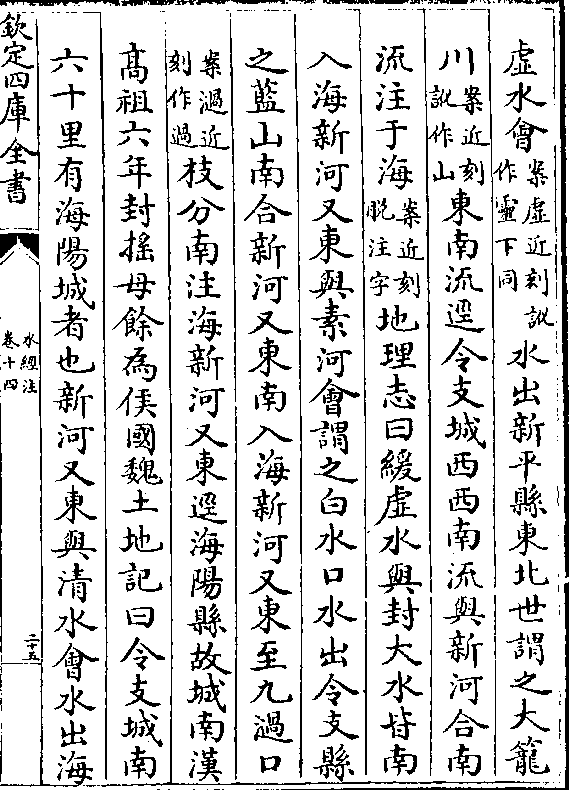 虛水會案虛近刻訛作靈下同水出新平縣東北世謂之大籠
川案近刻訛作山東南流逕令支城西西南流與新河合南
流注于海案近刻脫注字地理志曰緩虛水與封大水皆南
入海新河又東與素河會謂之白水口水出令支縣
之藍山南合新河又東南入海新河又東至九濄口
案濄近刻作過枝分南注海新河又東逕海陽縣故城南漢
高祖六年封搖母餘為侯國魏土地記曰令支城南
六十里有海陽城者也新河又東與清水會水出海
欽定四庫全書
水經注
卷十四
二十五